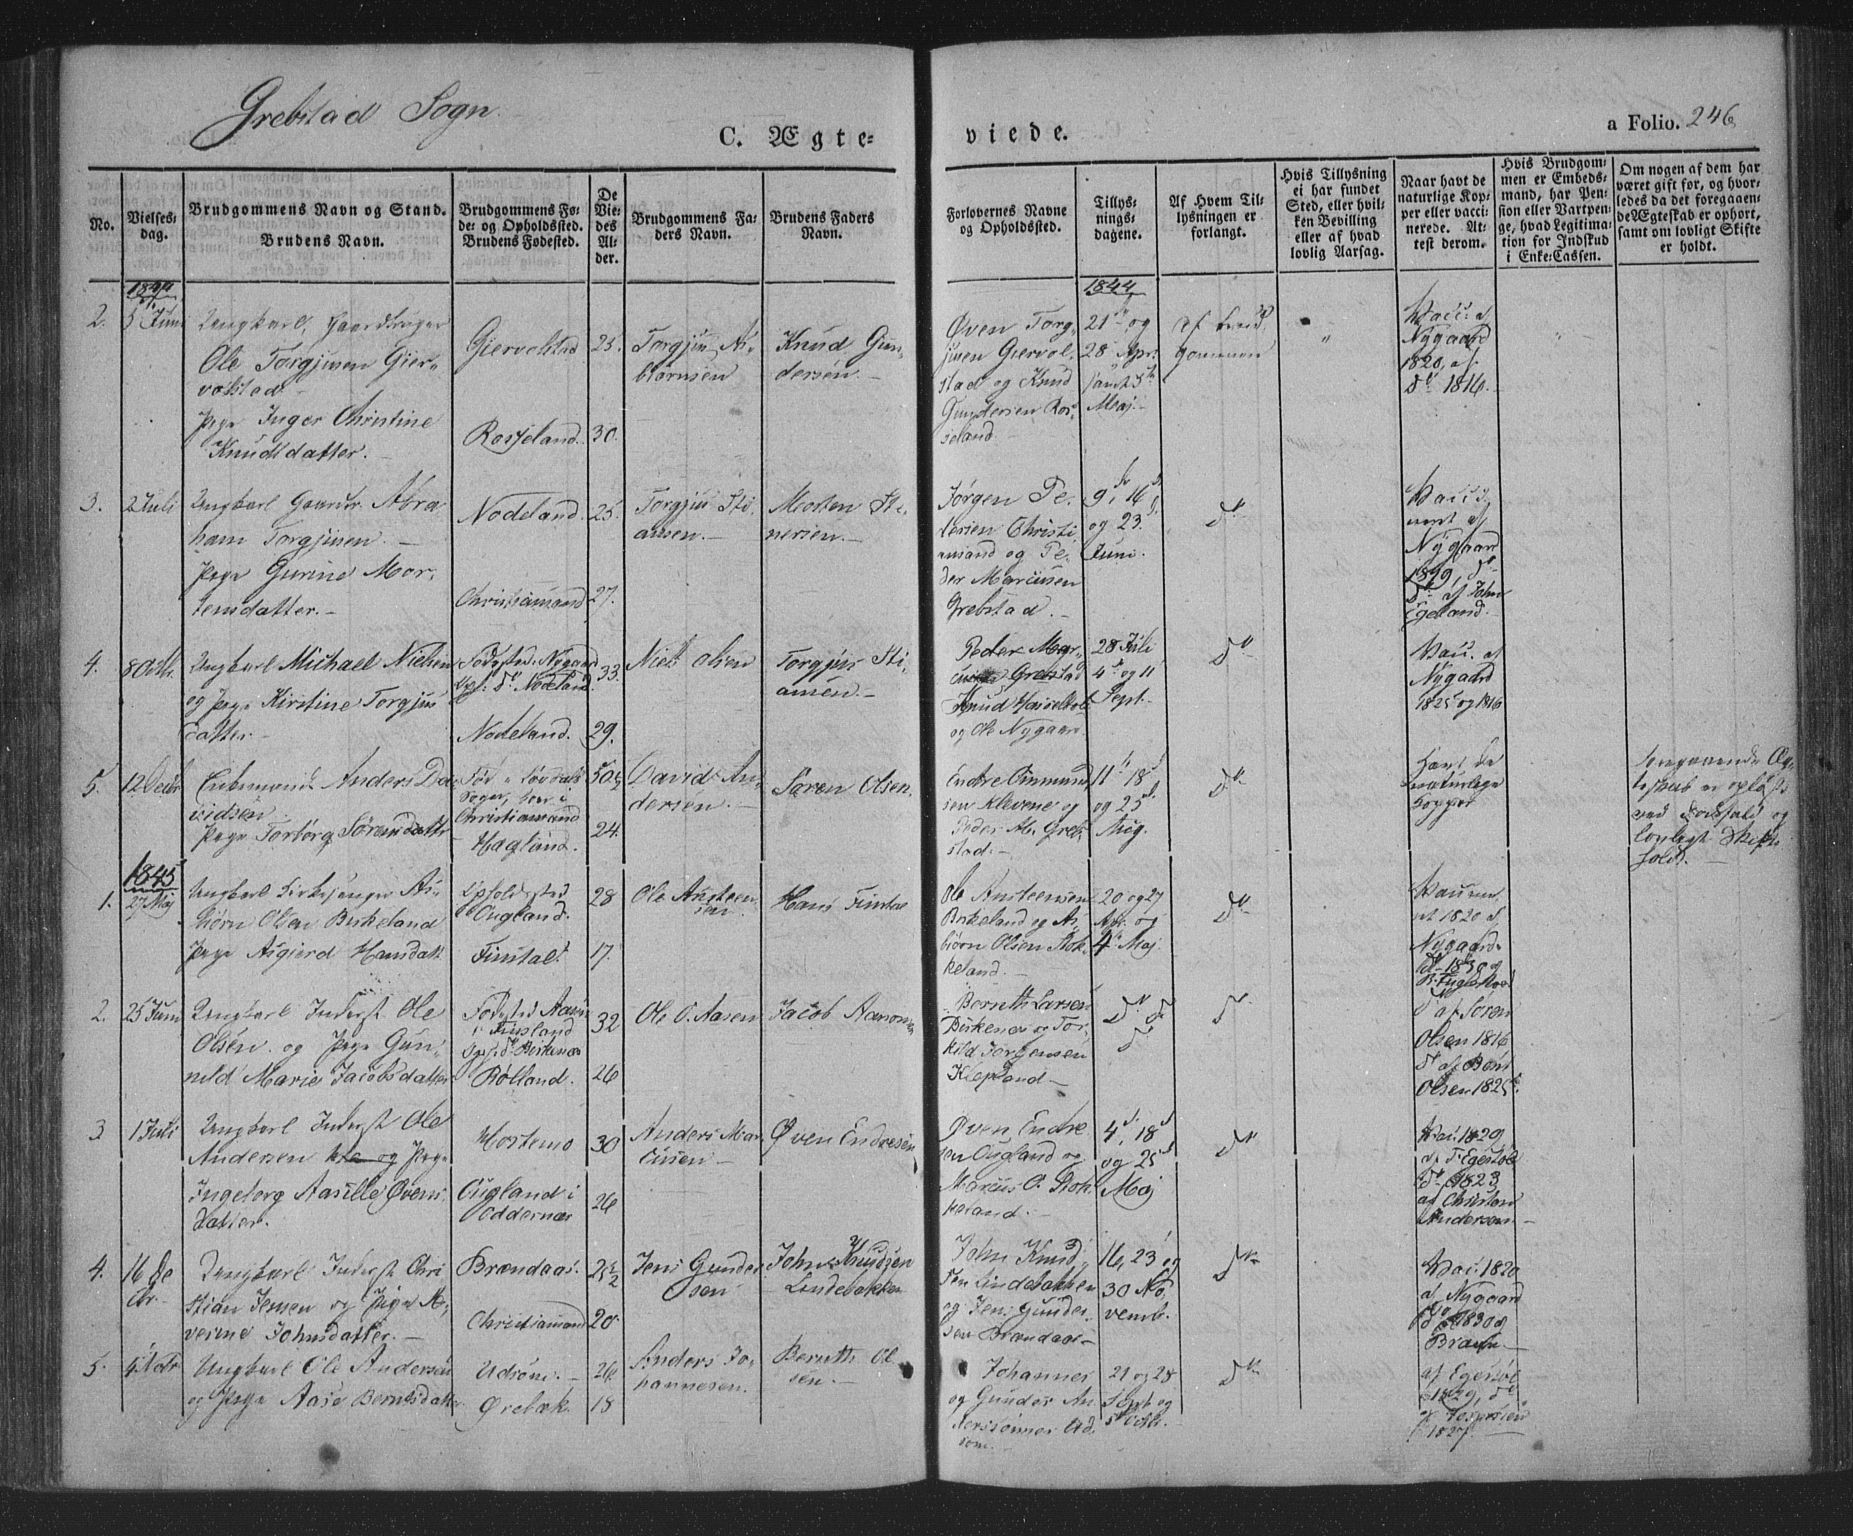 Grebstad Sogn
C. Ægte=
viede.
a Folio. 246
No.
Vielses=
dag.
Brudgommens Navn og Stand.
Brudens Navn.
Brudgommens Fø=
de= og Opholdssted.
Brudens Fødested.
De
Vie=
des
Al=
der.
Brudgommens Fa=
ders Navn.
Brudens Faders
Navn.
Forlovernes Navne
og Opholdssted.
Tillys=
nings=
dagene.
Af Hvem Til=
lysningen er
forlangt.
Hvis Tillysning
ei har fundet
Sted, eller hvil=
ken Bevilling
eller af hvad
lovlig Aarsag.
Naar havt de
naturlige Kop=
per eller vacci=
nerede. At=
test derom.
Hvis Brudgom=
men er Embeds=
mand, har Pen=
sion eller Vartpen=
ge, hvad Legitima=
tion for Indskud
i Enke=Cassen.
Om nogen af dem har
været gift før, og hvor=
ledes da det foregaaen=
de Ægteskab er ophørt,
samt om lovligt Skifte
er holdt.
1844
2. Juni
Ungkarl, Gaardbruger
Ole Torgjusen Gier=
volstad
Pige Inger Christine
Knudsdatter.
Giervolstad
Rosseland.
25.
30.
Torgjus As=
biørnsen
Knud Gun=
dersen
Øven Torg=
jusen Giervol=
stad og Knud
Gundersen Ros=
seland
1844
21 og
28 Apr.
samt 5te
Maj.
af Brud=
gommen
"
Vacc. af
Nygaard
1820, af
do 1816.
"
3. 2 Juli
Ungkarl Gaardbr. Abra
ham Torgjusen.
Pige Gurine Mor=
tensdatter.
Nodeland.
Christiansand
25.
27.
Torgjus Sti=
ansen.
Morten Ste=
nersen.
Jørgen Pe=
tersen Christi=
ansand og Pe=
der Marcusen
Grebstad.
9, 16
og 23
Juni.
do
Nygaard
1819,
do af John
Egeland.
4. 8 Octbr.
Ungkarl Michael Nielsen
og Pige Kirstine Torgjus
datter.
Fødested: Nygaard
Oph: do Nodeland.
Nodeland.
33.
29.
Niels Olsen
Torgjus Sti=
ansen.
Peder Mar=
Grebstad
Knud
og Ole Nygaard
28 Juli
4 og 11
Sept.
do
Vacc. af
Nygaard
1825 og 1816
5. 12 Decbr
Enkemand Anders Da=
vidsen.
Pige Torborg Sørensdatter
Christiansand
Hagland.
50
24.
David An=
dersen.
Søren Olsen.
Endre Omund
sen Klevene og
Peder M. Greb=
stad.
11, 18
og 25
Aug.
do
Havt de
naturlige
Kopper
foregaaende Æg=
teskab er opløst
ved Dødsfald og
lovligt Skifte
holdt.
1845
1. 27 Maj
Ungkarl Kirkesanger As=
biørn Olsen Birkeland
Pige Asgierd Hansdatt
Opholdssted
Augland.
Finstal.
28
17.
Ole Ansteen
sen.
Hans Finstal
Ole Ansteensen
Birkeland og As=
biørn Olsen Stok=
keland.
20 og 27
Apr. og
4 Maj.
do
1820 af
Nygaard.
do 1830 af
2. 25 Juni
Ungkarl Inderst Ole
Olsen og Pige Gun=
nild Marie Jacobsdatter
Fødested Aasen
i
Oph: do Birkenæs
Rølland.
32
26
Ole O. Aasen
Jacob Aanon
Berntth Larsen
Birkenæs og Tor=
kild Jørgensen
Klepland
do
do
do af Søren
Olsen 1816
do af Bent
Olsen 1825
3 1 Juli
Ungkarl Inderst Ole
Andersen og Pige
Ingeborg Aasille Øvens
datter.
Hortemo
Augland i
Oddernæs
30
26
Anders Mar
cusen
Øven Endresen
Øven Endre
sen Augland og
Marcus O. Stok
keland.
4, 18
og 25
Maj
do
Vacc. 1820
af T. Egesløe
do 1823
af Christen
Andersen
4. 16 De
cbr
Ungkarl Inderst Chri
stian Jensen og Pige Se=
verine Johnsdatter.
Brændaas.
Christiansand
25 1/2
20.
Jens Gunder
sen
John Knudsen
Lindebakken
John Knud=
sen Lindebakken
og Jens Gunder
sen Brændaas
16, 23 og
30 No=
vemb.
do
Vacc. 1820
af Nygaard
do 1830 af
Brann
5.
Ungkarl Ole Andersen
og Pige Aase Berntsdatter
Udsone.
Ørebæk.
26
18
Anders Jo=
hannesen.
Berntth Ol=
sen.
Johannes
og Gunder An
derssønner Ud=
som.
21 og 28
Sept og
do
af Egesløe
1829, do
af Jespersen
1827.